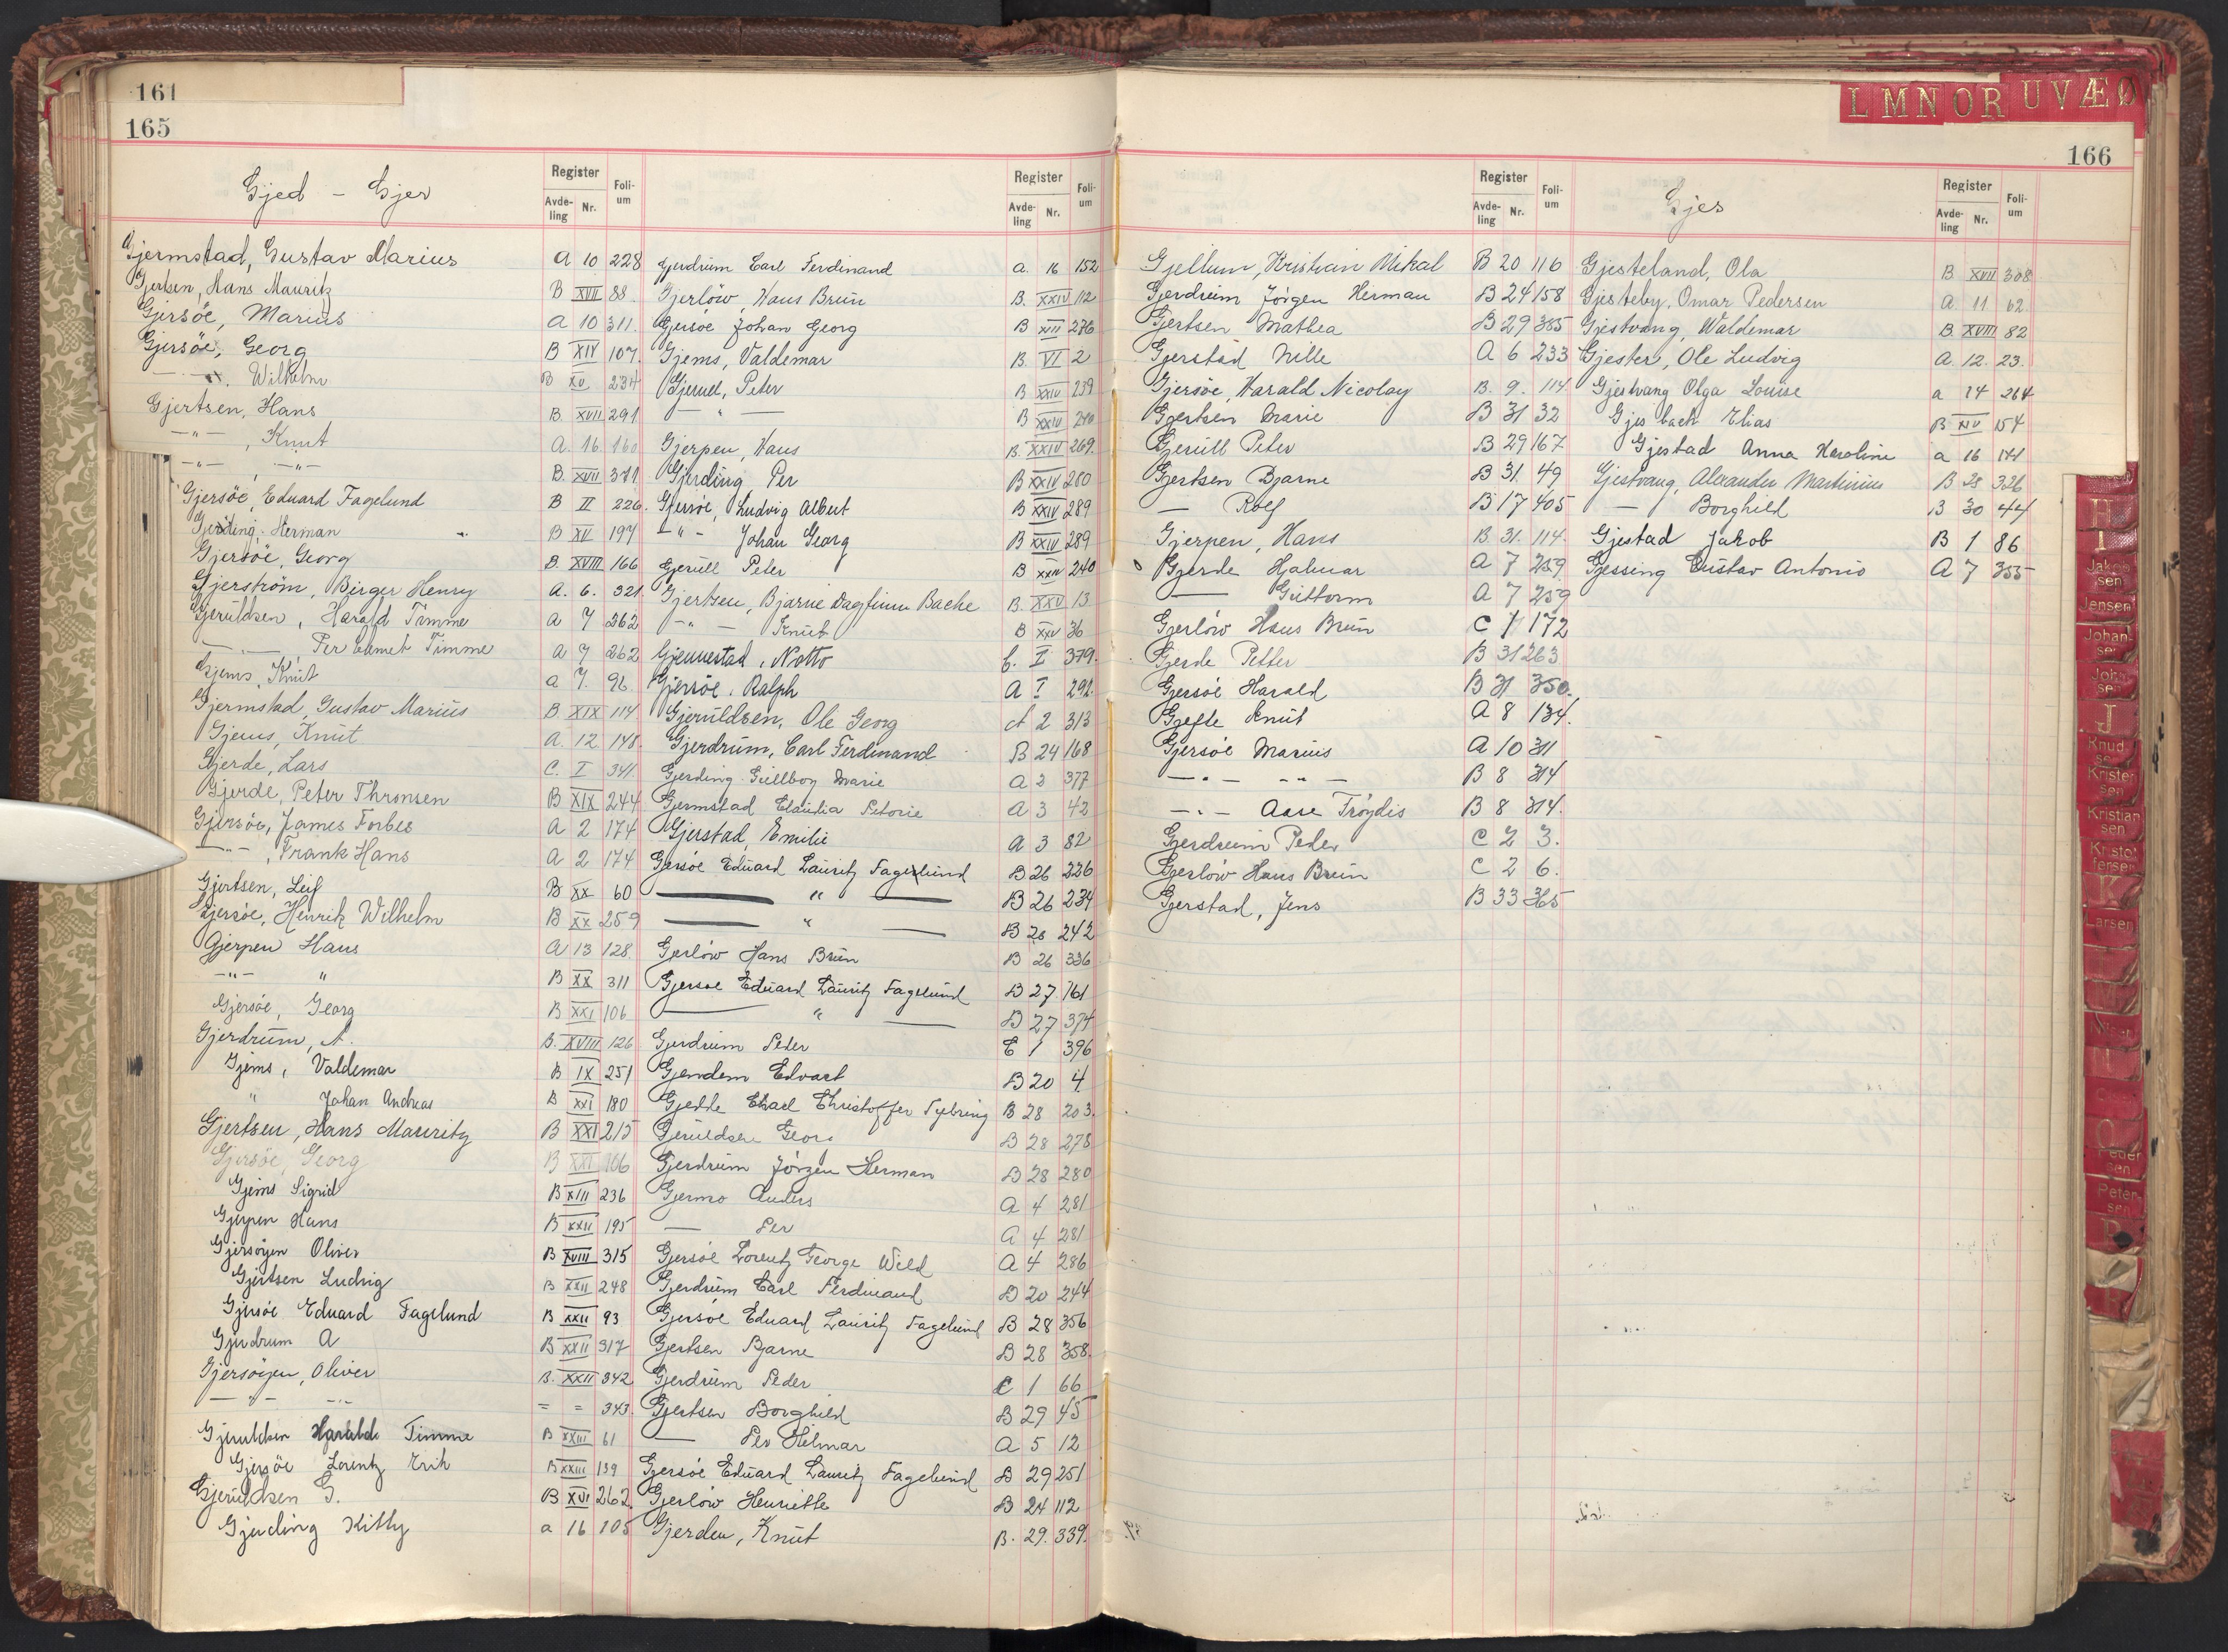 161
165
Gjed - Gjer
Register
Avde-ling Nr.
Foli-um
Gjermstad, Gustav Marius A 10 228
Gjertsen, Hans Mauritz B XVII 88
Gjersöe, Marius A 10 311
Gjersöe, Georg B XIV 107
— " — Wilhelm B XV 234
Gjertsen, Hans B. XVII 291
— " —, Knut A. 16. 160
— " — — " — B. XVII 371
Gjersöe, Eduard Fagelund B II 226
Gjerding, Herman B XV 197
Gjersöe, Georg B XVIII 166
Gjerström, Birger Henry A. 6. 321
Gjeruldsen, Harald Timme A 7 262
— " — Per Timme A 7 262
Gjems, Knut a 7. 96
Gjermstad, Gustav Marius B XIX 114
Gjems, Knut A. 12 148
Gjerde, Lars C. I 341
Gjerde, Peter Thronsen B XIX 244
Gjersöe, James Forbes A 2 174
— " —, Frank Hans A 2 174
Gjertsen, Leif B XX 60
Gjersöe, Henrik Wilhelm B XX 259
Gjerpen Hans A 13 128
— " — " B XX 311
Gjersöe, Georg B XXI 106
Gjerdrum, A. B. XVIII 126
Gjems, Valdemar B IX 251
" Johan Andreas B XXI 180
Gjertsen, Hans Mauritz B XXI 215
Gjersöe, Georg B XXI 106
Gjems Sigrid B XIII 236
Gjerpen Hans B XXII 195
Gjersöyen Oliver B XVIII 315
Gjertsen Ludvig B XXII 248
Gjersöe Eduard Fagelund B XXII 93
Gjerdrum A B XXII 317
Gjersöyen, Oliver B. XXII 342
— " — — " — = = 343
Gjeruldsen Harald Timme B XXIII 61
Gjersöe Lorentz Erik B XXIII 139
Gjeruldsen G. B XVI 262
Gjerding Kitty a 16 105
Register
Avde-ling Nr.
Foli-um
Gjerdrum Carl Ferdinand a. 16 152
Gjerlöw, Hans Brun B. XXIV 112
Gjersöe Johan Georg B XIII 276
Gjems, Valdemar B. VI 2
Gjerull, Peter B XXIV 239
— " — B XXIV 240
Gjerpen, Hans B. XXIV 269.
Gjerding Per B XXIV 280
Gjersöe, Ludvig Albert B XXIV 289
— " — Johan Georg B XXIV 289
Gjerull Peter B XXIV 240
Gjertsen, Bjarne Dagfinn Bache B. XXV 13
— " — Knut B XXV 36
Gjennestad, Notto C. I 379.
Gjersöe, Ralph A I 292
Gjeruldsen, Ole Georg A 2 313
Gjerdrum, Carl Ferdinand B 24 168
Gjerding Gullborg Marie A 2 377
Gjermstad Claudia Petorie A 3 42
Gjerstad, Emilie A 3 82
Gjersöe Eduard Lauritz Fagelund B 26 226
— " — B 26 234
— " — B 26 242
Gjerlöw Hans Brun B 26 336
Gjersoe Eduard Lauritz Fagelund B 27. 161
— " — B 27 374
Gjerdrum Peder C 1 396
Gjendem Edvart B 20 4
Gjedde Christoffer B 28 203.
Gjeruldsen Georg B 28 278
Gjerdrum Jörgen Herman B 28 280
Gjermo Anders A 4 281
— Per A 4 281
Gjersöe Lorentz George Wild A 4 286
Gjerdrum Carl Ferdinand B 20 244
Gjersöe Eduard Lauritz Fagelund B 28 356
Gjertsen Bjarne B 28 358.
Gjerdrum Peder C 1 66
Gjertsen Borghild B 29 45
— Per Hilmar A 5 12
Gjersöe Eduard Lauritz Fagelund B 29 251
Gjerlöw Henriette B 24 112
Gjerden, Knut B. 29. 339.
L M N O R U V Æ Ø
166
Register
Avde-ling Nr.
Foli-um
Gjellum, Kristian Mikal B 20 116
Gjerdrum Jörgen Herman B 24 158
Gjertsen Mathea B 29 385
Gjerstad Nille A 6 233
Gjersöe, Harald Nicolay B. 9. 114
Gjertsen Marie B 31 32
Gjerull Peter B 29 167
Gjertsen Bjarne B 31. 49
— Rolf B 17 405
Gjerpen, Hans B. 31. 114.
Gjerde Halmar A 7 259
— Guttorm A 7 259
Gjerlöw Hans Brun C 1 172
Gjerde Petter B 31 263
Gjersöe Harald B 31 350.
Gjefte Knut A 8 134.
Gjersöe Marius A 10 311
— " — — " — B 8 314
— " — Aase Fröydis B 8 314.
Gjerdrum Peder C 2 3.
Gjerlöw Hans Brun C 2 6.
Gjerstad, Jens B 33 365
Gjes
Register
Avde-ling Nr.
Foli-um
Gjesteland, Ola B XVII 308
Gjesteby, Omar Pedersen A 11 62
Gjestvang, Waldemar B. XVIII 82
Gjester, Ole Ludvig A. 12. 23.
Gjestvang Olga Louise a 14 264
Gjesbach Elias B XIV 154
Gjestad Anna Karoline a 16 141
Gjestvang, Alexander Martinius B 28 326
— Borghild B 30 44
Gjestad Jakob B 1 86
Gjessing Gustav Antonio A 7 355
H
I
Jakob-sen
Jensen
Johan-sen
J
Knud-sen
Kristen-sen
Kristian-sen
Kristof-fersen
K
Larsen
N
O
Peder-sen
Peter-sen
P